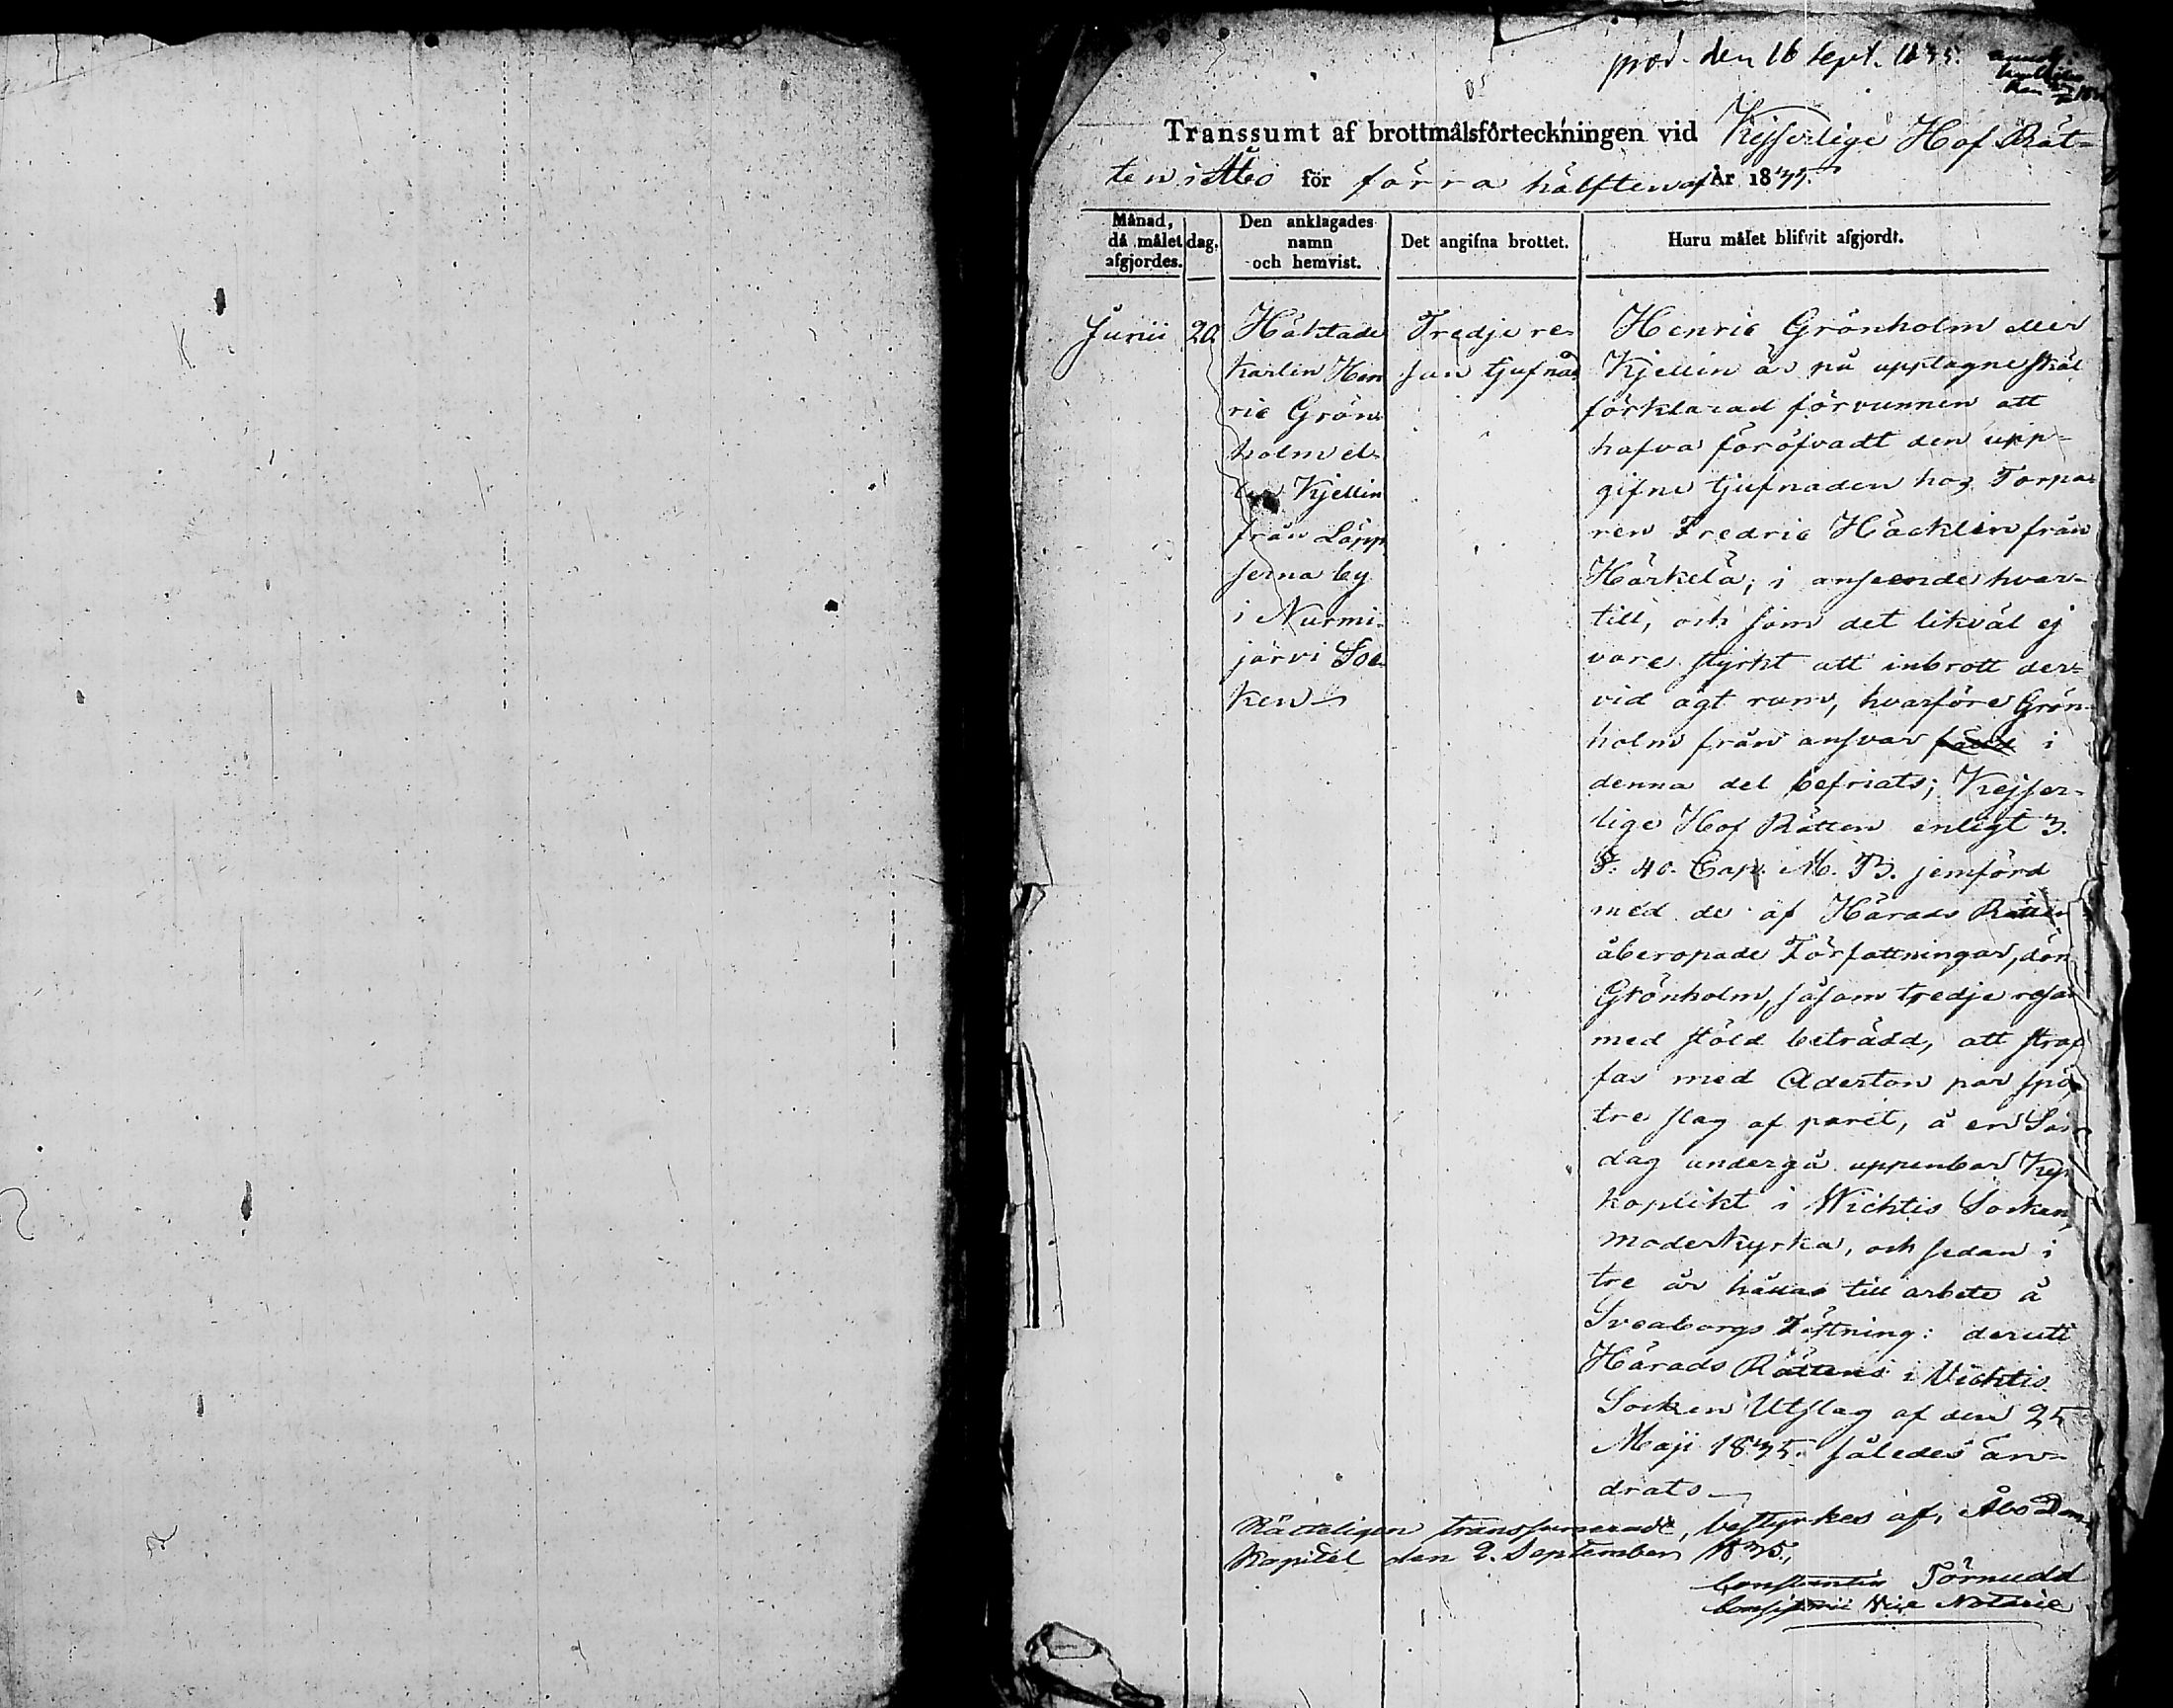 præs. den 16 Sept. 1835.
Transsumt af brottmålsförteckningen vid Kejserlige Hof Rät-
ten i Åbo för förra hälften af År 1835.
Månad, då målet afgjordes.
dag.
Den anklagades namn och hemvist.
Det angifna brottet.
Huru målet blifvit afgjordt.
Junii
20
Häktade
karlen Hen
ric Grön-
holm el-
ler Kjellin
från Läpp
serna by
i Nurmi-
järvi Soc-
ken
Tredje re-
san tjufnad
Henric Grönholm eller
Kjellin är på upptagne skäl
förklarad förvunnen att
hafva föröfvadt den upp-
gifne tjufnaden hos Torpa-
ren Fredric Häcklin från
Härkelä; i anseende hvar-
till, och som det likväl ej
vore styrkt att inbrott der-
vid ägt rum, hvarföre Grön-
holm från ansvar i
denna del befriats; Kejser-
lige Hof Rätten enligt 3.
§. 40. Cap. M. B. jemförd
med de af Härads Rätten
åberopade Författningar, döm
Grönholm, såsom tredje resan
med stöld beträdd, att straf
fas med Aderton par spö,
tre slag af paret, å en Sön
dag undergå uppenbar Kyr
koplikt i Wichtis Socken
moderkyrka, och sedan i
tre år hållas till arbete å
Sveaborgs Fästning: derutï
Härads Rättens i Vichtis
Socken Utslag af den 25
Maji 1835. således än-
drats
Rätteligen transsumeradt, bestyrkes af, Åbo Dom
Kapitel den 2. September 1835.,
Constantin Törnudd
Consistorii Vice Notarie